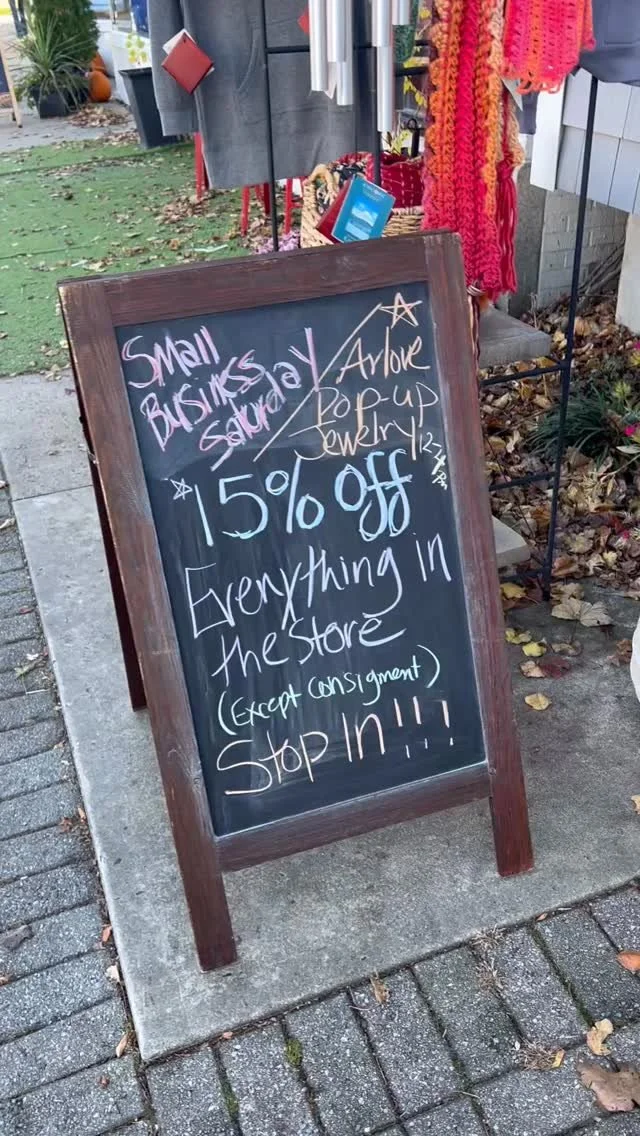 Small
Business
Saturday
Arlove
Pop-up
Jewelry
15% Off
Everything in
the Store
(Except Consignment)
Stop In!!!